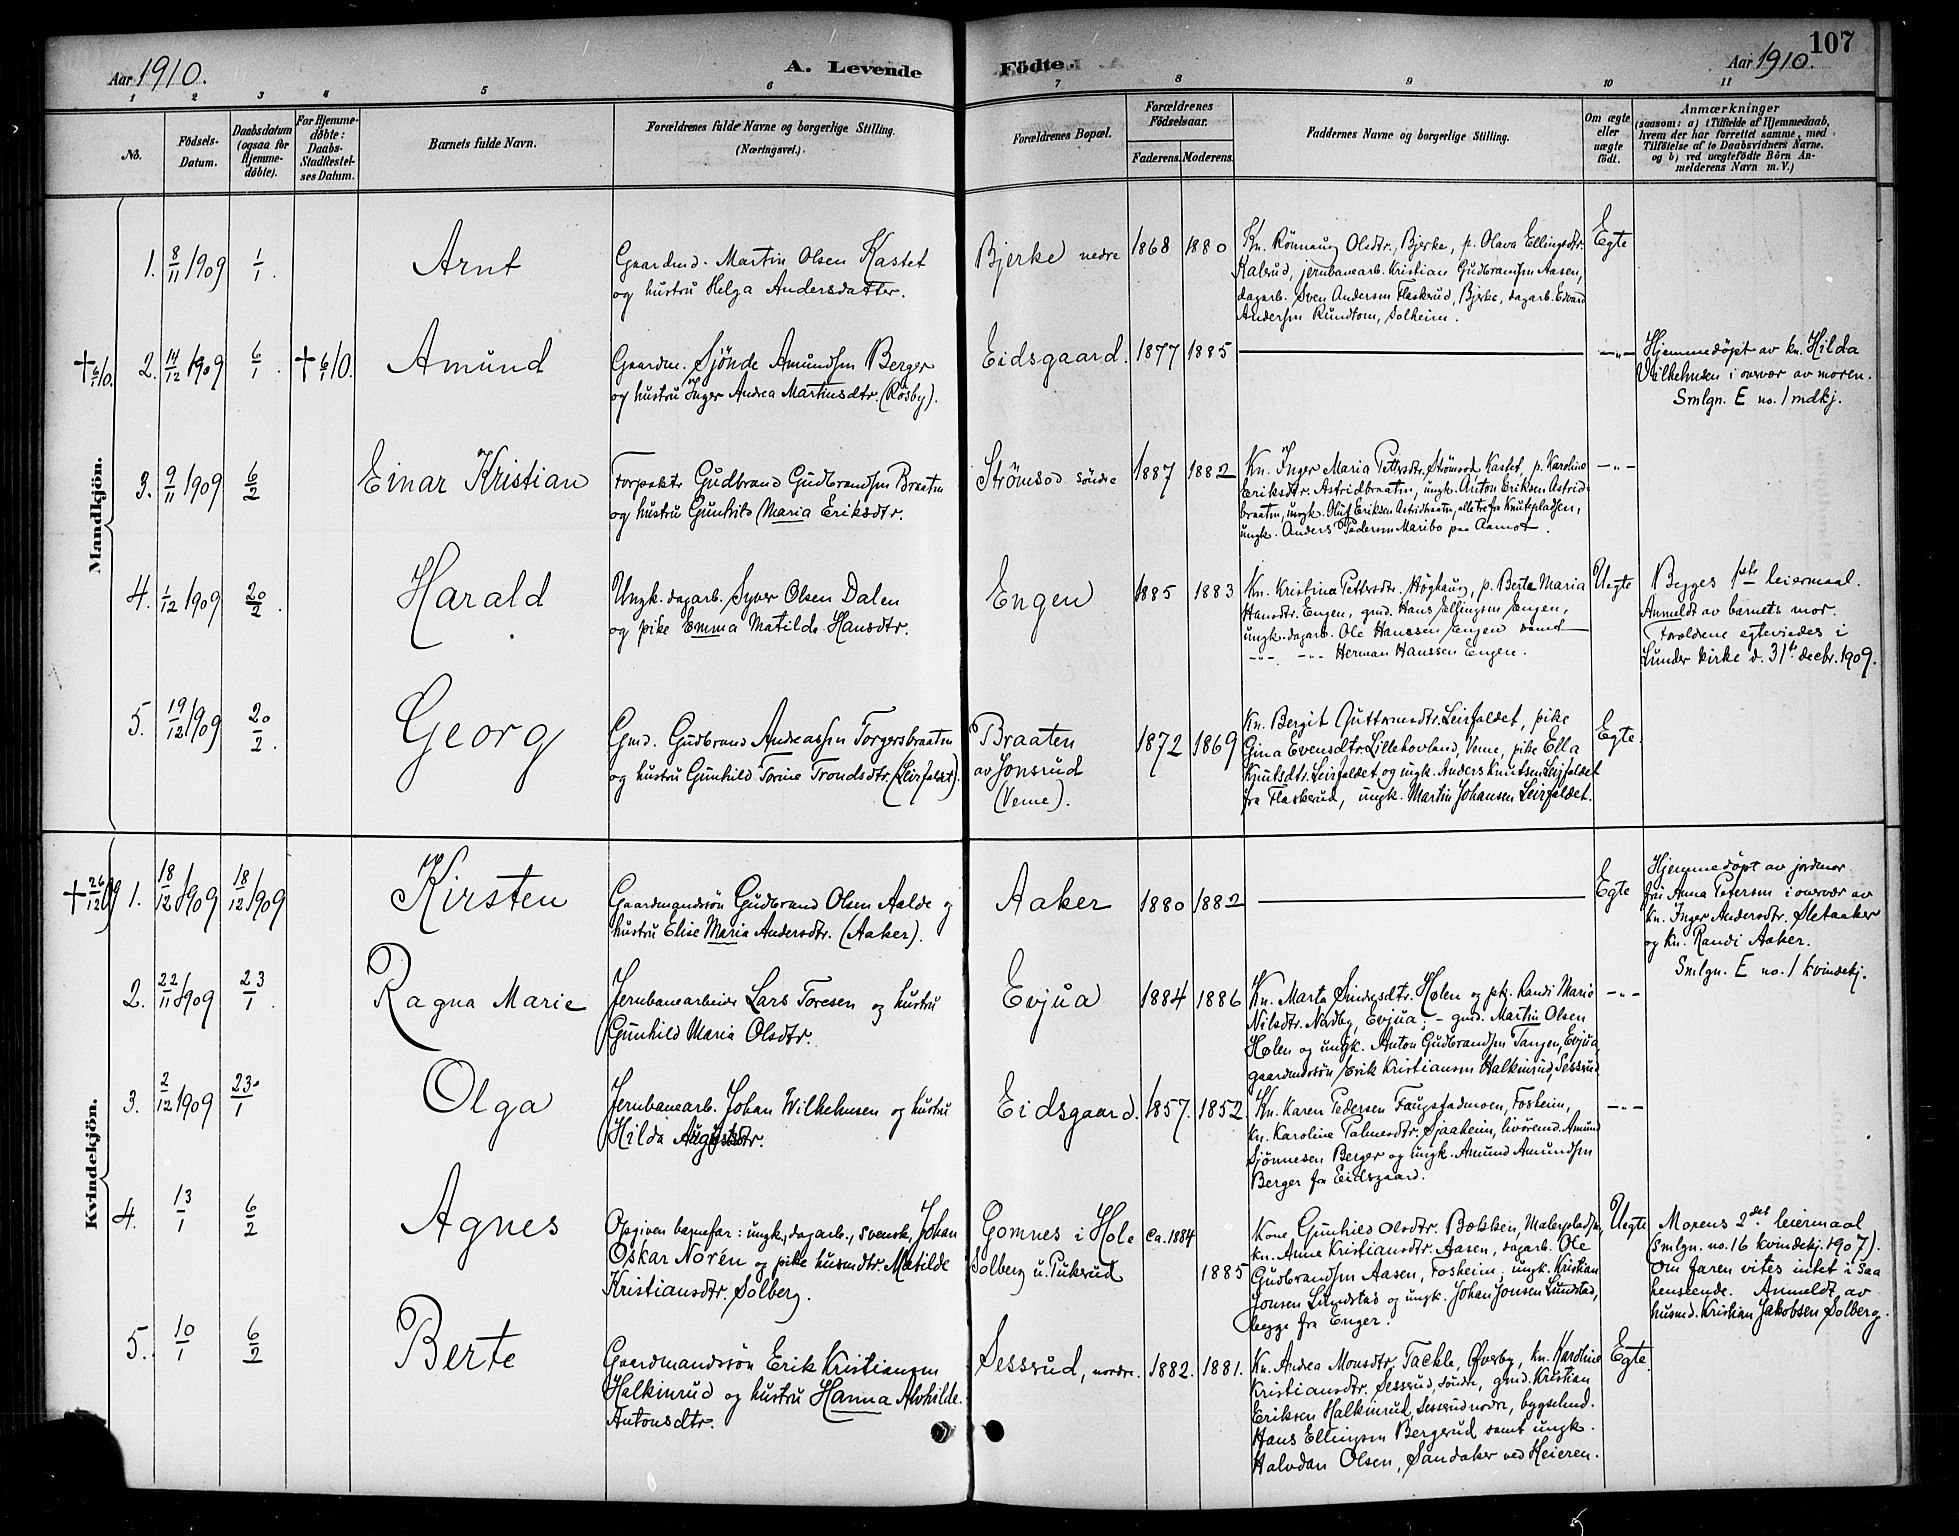 107
Aar 1910.
A. Levende
Födte.
Aar 1910.
1 2 3 4 5 6 7 8 9 10 11
No.
Födsels-
Datum.
Daabsdatum
(ogsaa for
Hjemme-
döbte).
For Hjemme-
döbte:
Daabs-
Stadfæstel-
ses Datum.
Barnets fulde Navn.
Forældrenes fulde Navne og borgerlige Stilling.
(Næringsvei.)
Forældrenes Bopæl.
Forældrenes
Födselsaar.
Faderens.
Moderens.
Faddernes Navne og borgerlige Stilling.
Om ægte
eller
uægte
födt.
Anmærkninger
(saasom: a) i Tilfælde af Hjemmedaab,
hvem der har forrettet samme, med
Tilföielse af to Daabsvidners Navne.
og b) ved uægtefödte Börn An-
melderens Navn m. V.)
Mandkjön.
1. 8/11 1909 1/1.
Arnt
Gaardmd. Martin Olsen Kastet
og hustru Helga Andersdatter.
Bjerke nedre 1868 1880
Kn. Rönnaug Olsdtr., Bjerke, p. Olava Ellingsdtr.
Kalsrud, jernbanearb. Kristian Gudbrandsen Aasen,
dagarb. Sven Andersen Flaskerud, Bjerke, dagarb. Edvard
Andersen Rundtom, Solheim.
Egte
† 6/1 10. 2. 14/12 1909 6/1 † 6/1 10.
Amund
Gaardm. Sjönde Amundsen Berger
og hustru Inger Andrea Martinsdtr. (Rösby).
Eidsgaard. 1877 1885
—"—
Hjemmedöpt av kn. Hilda
Vilhelmsen i overvær av moren.
Smlgn. E no. 1 mdkj.
3. 9/11 1909 6/2
Einar Kristian
Forpakt. Gudbrand Gudbrandsen Braaten
og hustru Gunhild Maria Eriksdtr.
Strömsod söndre 1887 1882
Kn. Inger Maria Pettersdtr. Strömsod Kastet, p. Karoline
Eriksdtr. Astridbraaten, ungk. Anton Eriksen Astrid-
braaten, ungk. Oluf Eriksen Astridbraaten, alle tre fra Knutspladsen,
ungk. Anders Pedersen Maribo paa Aamot.
—"—
4. 1/12 1909 20/2.
Harald
Ungk. dagarb. Syver Olsen Dalen
og pike Emma Matilde Hansdtr.
Engen 1885 1883
Kn. Kristine Pettersdtr. Höghaug, p. Berte Maria
Hansdtr. Engen, gmd. Hans Ellingsen Engen,
ungk. dagarb. Ole Hanssen Engen samt
—"— —"— Herman Hanssen Engen.
Uegte
Begges 1ste leiermaal.
Anmeldt av barnets mor.
Foreldrene egteviedes i
Lunder kirke d. 31te decbr. 1909.
5. 19/12 1909 20/2.
Georg
Gmd. Gudbrand Andreassen Torgersbraaten
og hustru Gunhild Torine Trondsdtr. (Leirfaldet).
Braaten
av Jonsrud
(Veme).
1872 1869
Kn. Bergit Guttormsdtr. Leirfaldet, pike
Gina Evensdtr. Lillehovland, Veme, pike Ella
Knutsdtr. Leirfaldet og ungk. Anders Knutsen Leirfaldet
fra Flaskerud, ungk. Martin Johansen Leirfaldet.
Egte.
Kvindekjön.
† 26/12 09 1. 18/12 1909 18/12 1909
Kirsten
Gaardmandssön Gudbrand Olsen Aalde og
hustru Elise Maria Andersdtr. (Aaker).
Aaker 1880 1882
Egte
Hjemmedöpt av jordmor
fru Anna Petersen i overvær av
kn. Inger Andersdtr. Sletaaker
og kn. Randi Aaker.
Smlgn. E no. 1 kvindekj.
2. 22/11 1909 23/1.
Ragna Marie
Jernbanearbeider Lars Toresen og hustru
Gunhild Maria Olsdtr.
Evjua 1884 1886
Kn. Marta Sindresdtr. Hølen og pk. Randi Marie
Nilsdtr. Nadby, Evjua; - gmd. Martin Olsen
Hølen og ungk. Anton Gudbrandsen Tangen, Evjua,
gaardmdssön Erik Kristiansen Halkinrud, Sessrud
—"—
3. 2/12 1909 23/1
Olga
Jernbanearb. Johan Wilhelmsen og hustru
Hilda Augustsdtr.
Eidsgaard. 1857. 1852.
Kn. Karen Pedersen Faugstadmoen, Fosheim,
kn. Karoline Palmesdtr. Sjaaheim, livöremd. Amund
Sjönnesen Berger og ungk. Amund Amundsen
Berger fra Eidsgaard.
—"—
4. 13/1 6/2
Agnes
Opgiven barnefar: ungk., dagarb., svensk, Johan
Oskar Norén og pike husmdtr. Matilde
Kristiansdtr. Solberg.
Gomnes i Hole
Solberg u. Puksrud
ca. 1884
1885
Kone Gunhild Olsdtr. Bækken, Malerpladsen,
kn. Anne Kristiansdtr. Aasen, dagarb. Ole
Gudbrandsen Aasen, Fosheim, ungk. Kristian
Jonsen Lundstad og ungk. Johan Jonsen Lundstad,
begge fra Enger.
Uegte
Morens 2det leiermaal
(Smlgn. no. 16 kvindekj. 1907).
Om faren vites intet i saa
henseende. Anmeldt av
husmd. Kristian Jakobsen Solberg.
5. 10/1 6/2
Berte
Gaardmandssön Erik Kristiansen
Halkinrud og hustru Hanna Alvhilde
Antonsdtr.
Sessrud, nordre. 1882. 1881.
Kn. Andrea Monsdtr. Tackle, Øverby, kn. Karoline
Kristiansdtr. Sessrud, söndre, gmd. Kristian
Eriksen Halkinrud, Sessrud nordre, bygselmd.
Hans Ellingsen Bergerud samt ungk.
Halvdan Olsen, Sandaker ved Heieren.
Egte.